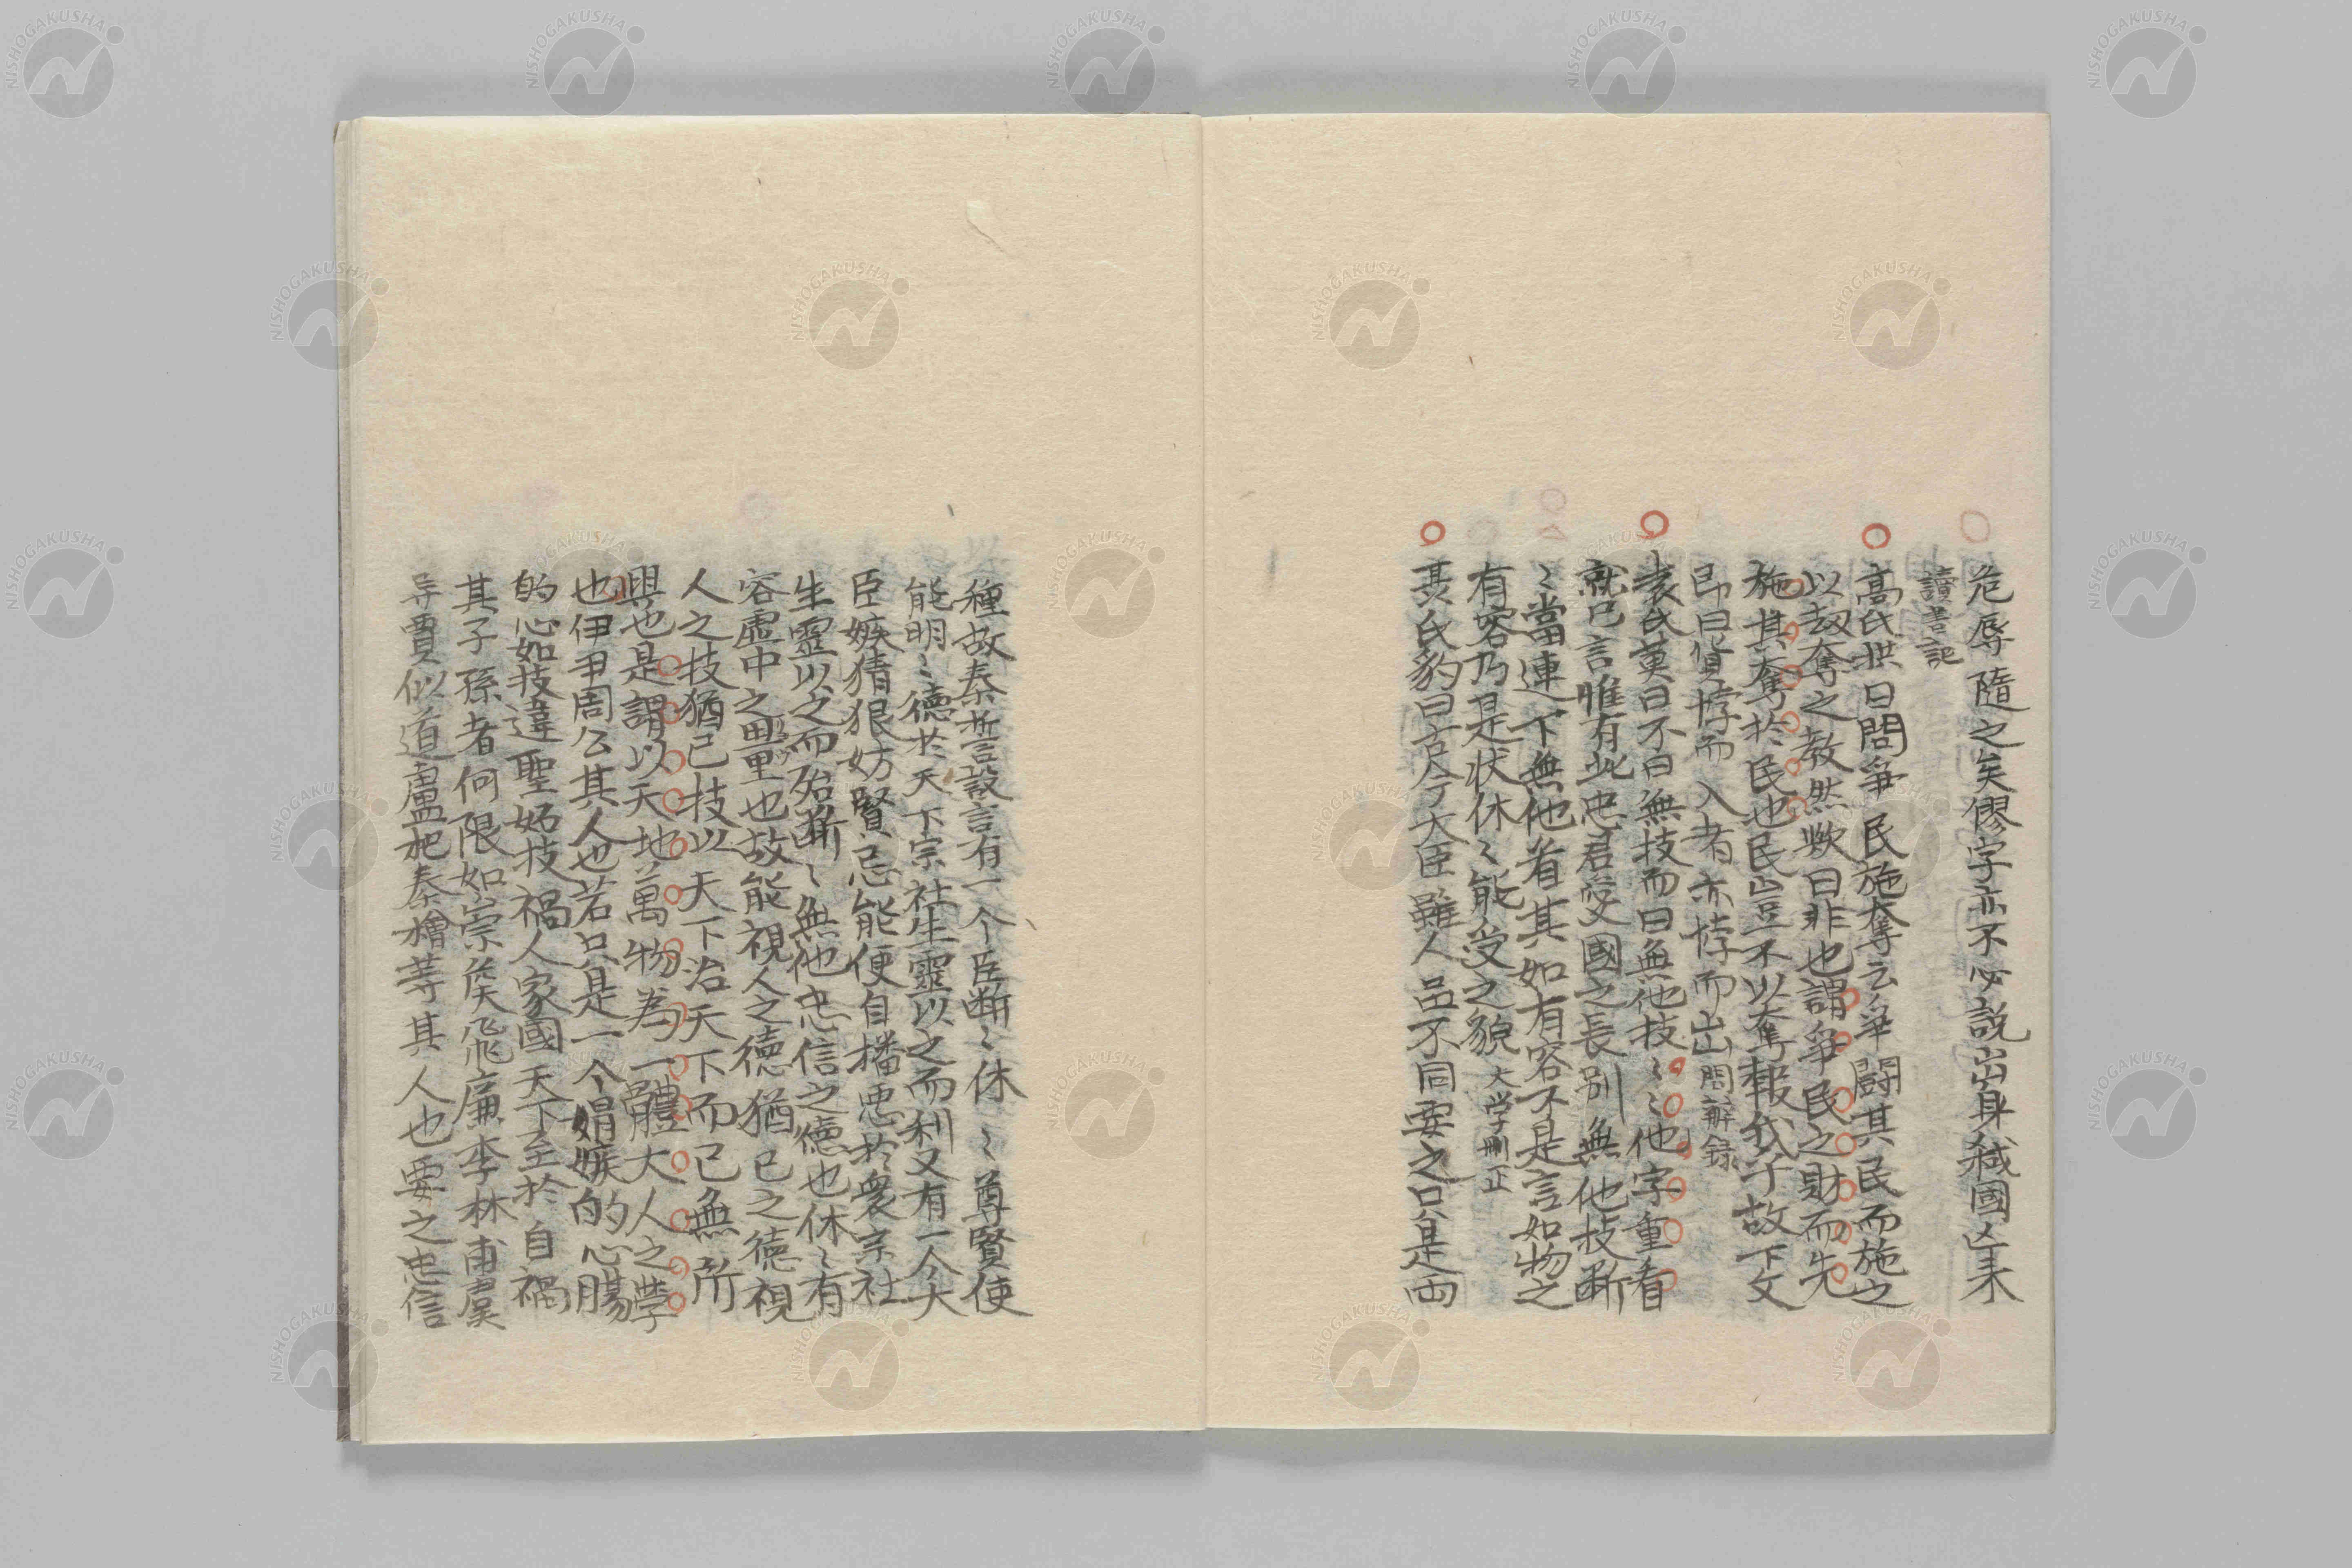 危辱隨之矣僇字亦不必説出身弒國亾来
讀書記
高氏拱曰問爭民施奪云爭鬪其民而施之
以刼奪之教然歟曰非也謂爭民之財而先
施其奪於民也民豈不以奪報我乎故下文
即曰貨悖而入者亦悖而出問辨録
袁氏黄曰不曰無技而曰無他技〻〻他字重看
就已言惟有此忠君愛國之長別無他技断
〻當連下無他看其如有容不是言如物之
有容乃是状休〻能受之貌大学刪正
其氏豹曰古今大臣雖人品不同要之只是両
種故秦誓設言有一个臣断〻休〻尊賢使
能明〻徳於天下宗社生靈以之而利又有一个大
臣嫉猜狠妨賢忌能便自播悪於衆宗社
生靈以之而殆断〻無他忠信之徳也休〻有
容虚中之量也故能視人之徳猶己之徳視
人之技猶己技以天下治天下而已無所
與也是謂以天地萬物為一體大人之學
也伊尹周公其人也若只是一个娼嫉的心腸
的心如技違聖妨技禍人家國天下至於自禍
其子孫者何限如崇侯飛廉李林甫虞
㝵賈似道盧杞秦檜等其人也要之忠信